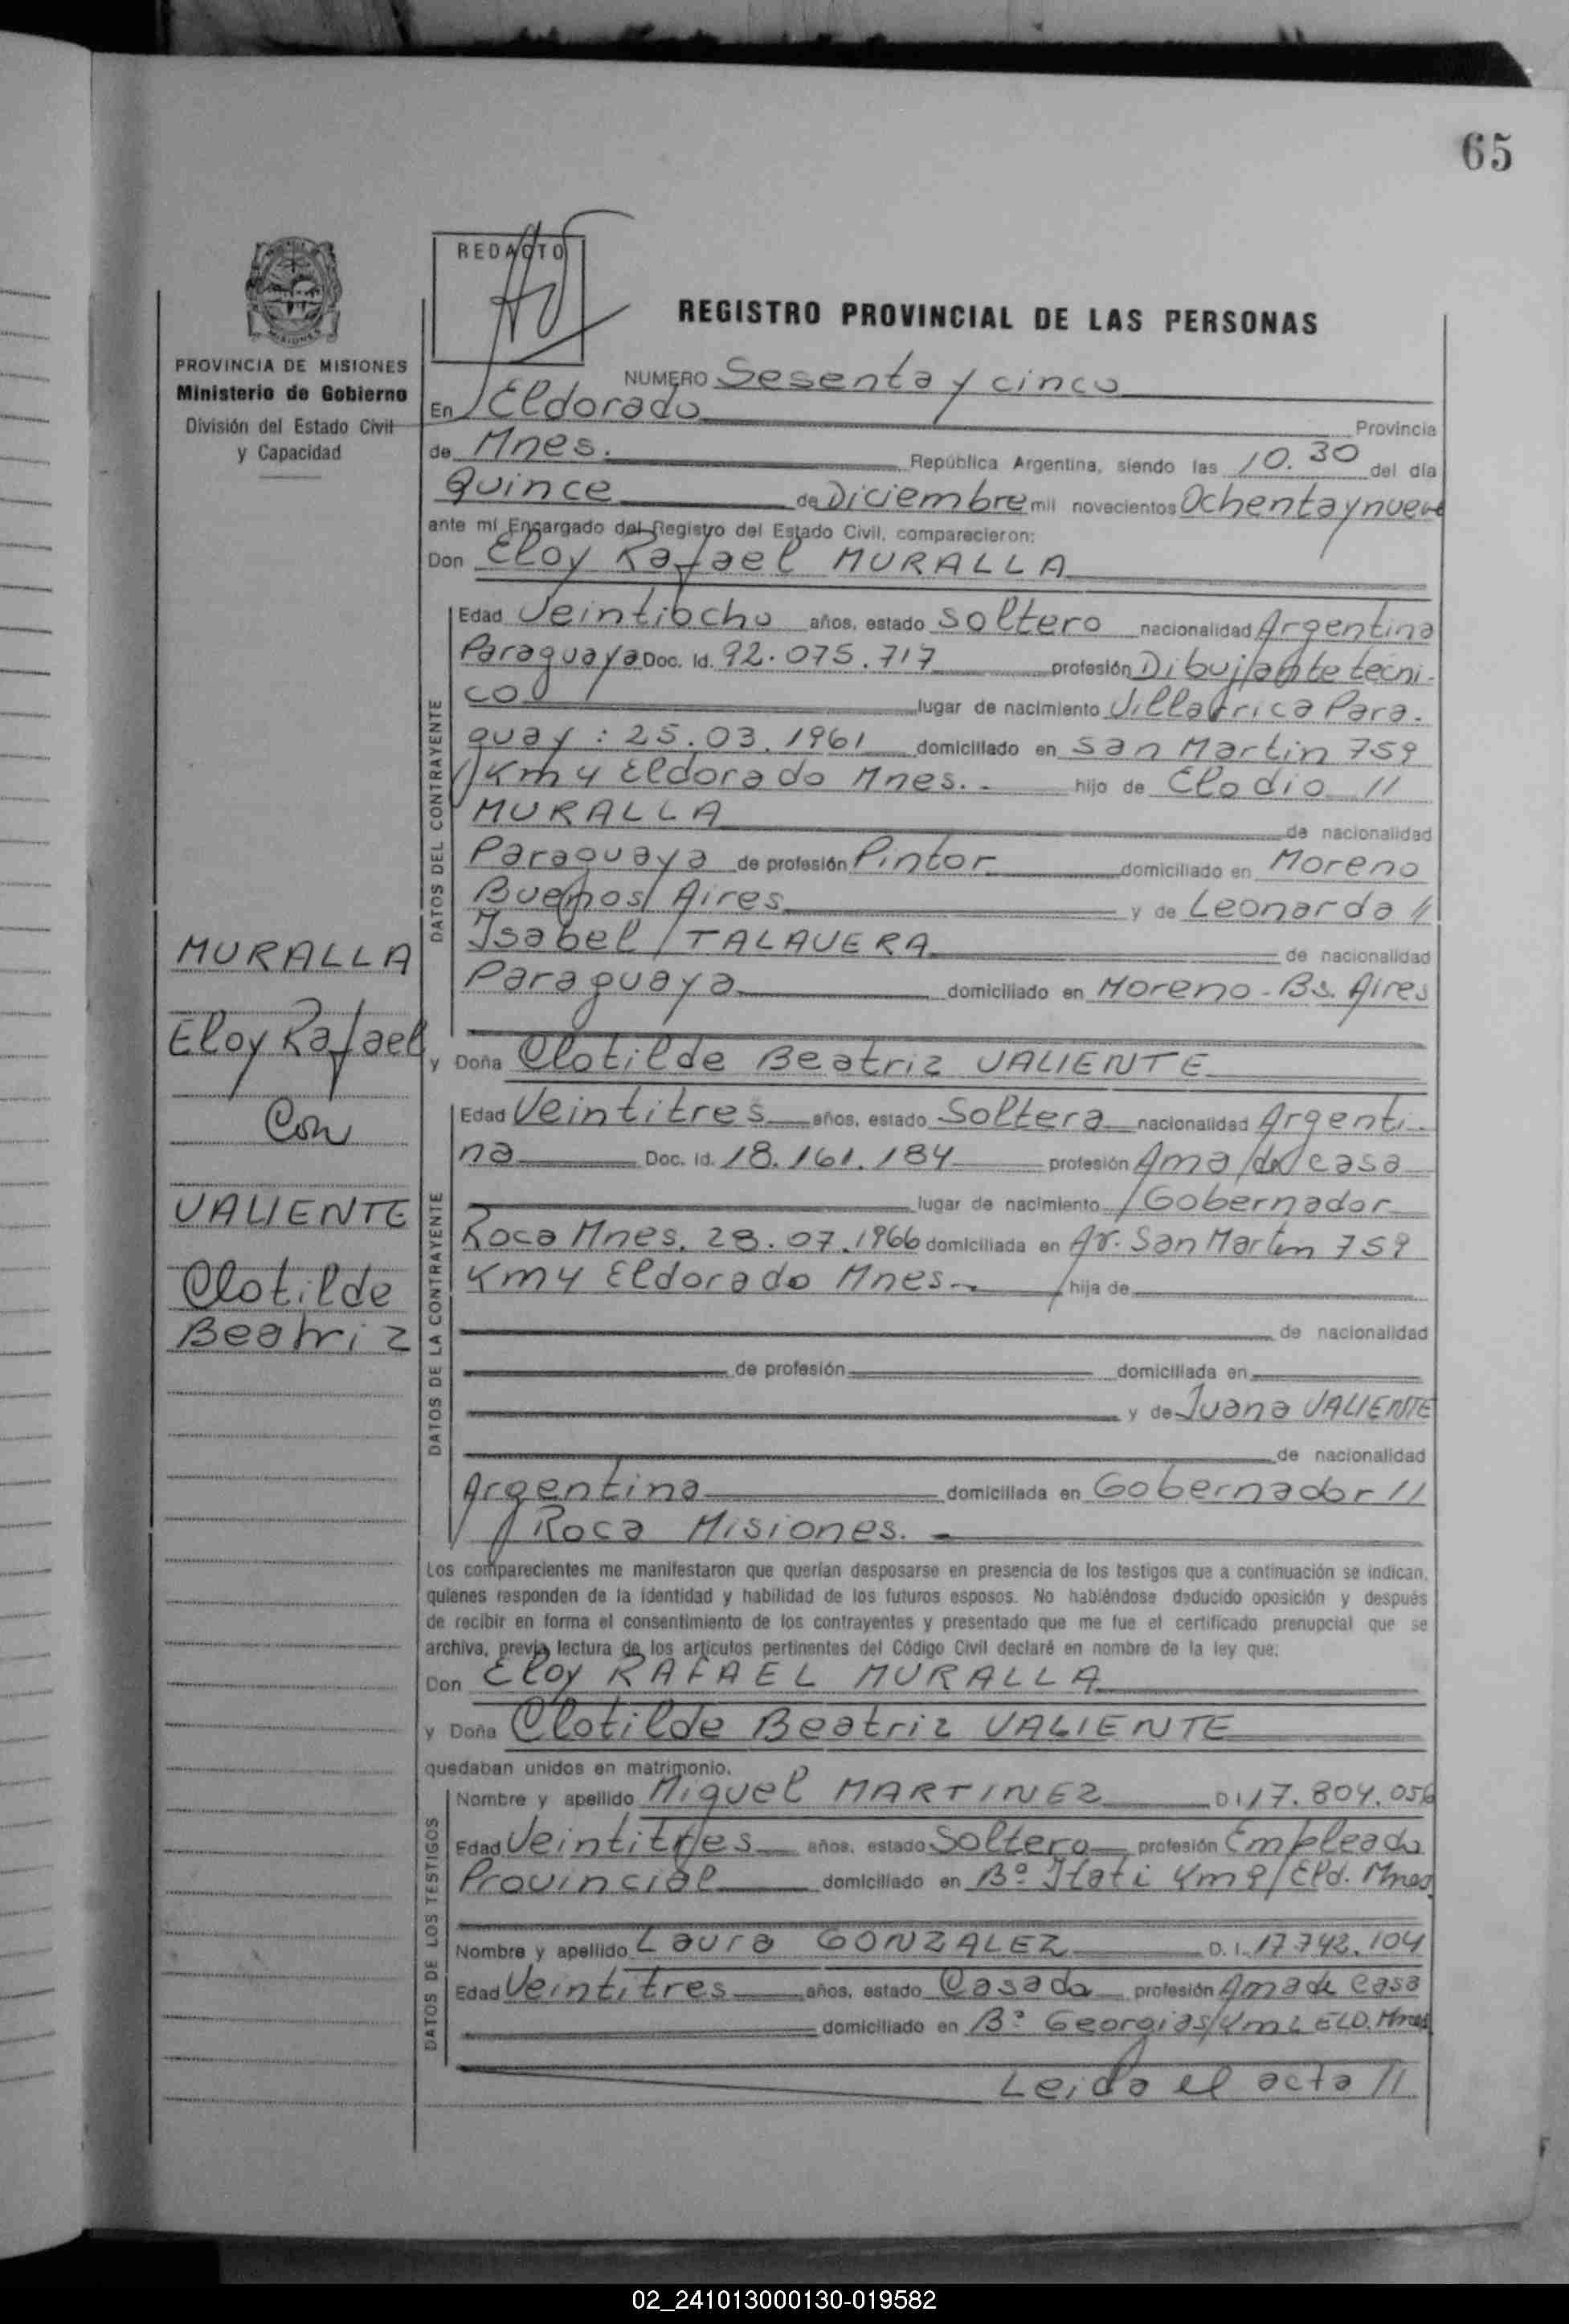 65
REDACTO
REGISTRO PROVINCIAL DE LAS PERSONAS
PROVINCIA DE MISIONES
Ministerio de Gobierno
División del Estado Civil
y Capacidad
MURALLA
Eloy Rafael
Con
VALIENTE
Clotilde
Beatriz
NUMERO Sesenta y cinco
En Eldorado Provincia
de Mnes. República Argentina, siendo las 10.30 del día
Quince de Diciembre mil novecientos Ochenta y nueve
ante mí Encargado del Registro del Estado Civil, comparecieron:
Don Eloy Rafael MURALLA
DATOS DEL CONTRAYENTE
Edad Veintiocho años, estado Soltero nacionalidad Argentina
Paraguaya Doc. Id. 92.075.717 profesión Dibujante técni-
co lugar de nacimiento Villarrica Para-
guay : 25.03.1961 domiciliado en San Martin 759
Km 4 Eldorado Mnes.- hijo de Elodio //
MURALLA de nacionalidad
Paraguaya de profesión Pintor domiciliado en Moreno
Buenos Aires y de Leonarda //
Isabel TALAVERA de nacionalidad
Paraguaya domiciliado en Moreno - Bs. Aires
y Doña Clotilde Beatriz VALIENTE
DATOS DE LA CONTRAYENTE
Edad Veintitres años, estado Soltera nacionalidad Argenti-
na Doc. Id. 18.161.184 profesión Ama de casa
lugar de nacimiento Gobernador
Roca Mnes. 28.07.1966 domiciliada en Av. San Martin 759
Km 4 Eldorado Mnes.- hija de
de nacionalidad
de profesión domiciliada en
y de Juana VALIENTE
de nacionalidad
Argentina domiciliada en Gobernador //
Roca Misiones. -
Los comparecientes me manifestaron que querían desposarse en presencia de los testigos que a continuación se indican,
quienes responden de la identidad y habilidad de los futuros esposos. No habiéndose deducido oposición y después
de recibir en forma el consentimiento de los contrayentes y presentado que me fue el certificado prenupcial que se
archiva, previa lectura de los artículos pertinentes del Código Civil declaré en nombre de la ley que:
Don Eloy RAFAEL MURALLA
y Doña Clotilde Beatriz VALIENTE
quedaban unidos en matrimonio.
DATOS DE LOS TESTIGOS
Nombre y apellido Miguel MARTINEZ D I 17.804.056
Edad Veintitres años, estado Soltero profesión Empleado
Provincial domiciliado en Bº Itati Km 9 Eld. Mnes
Nombre y apellido Laura GONZALEZ D. I. 17.742.104
Edad Veintitres años, estado Casada profesión Ama de casa
domiciliado en Bº Georgias Km 2 ELD. Mnes
Leida el acta //
02_241013000130-019582